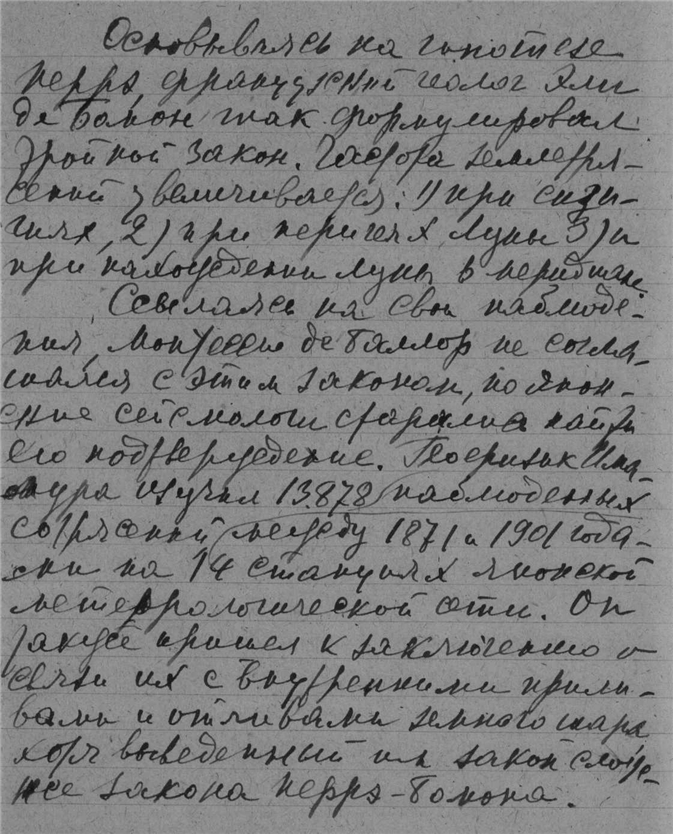 Основываясь на гипотезе
Перрэ, французский геолог Эли
де Бомон так формулировал
тройной закон. Частота землетря-
сений увеличивается: 1) при сизи-
гиях, 2) при перигеях Луны 3) и
при нахождении луны в меридиане.
Ссылаясь на свои наблюде-
ния, Монтессю де Баллор не согла-
шался с этим законом, но япон-
ские сейсмологи старались найти
его подтверждение. Геофизик Има-
мура изучил 13.878 наблюденных
сотрясений между 1871 и 1901 года-
ми на 14 станциях японской
метеррологической сети. Он
также пришел к заключению о
связи их с внутренними прили-
вами и отливами земного шара
хотя выведенный им закон слож-
нее закона Перрэ-Бомона.